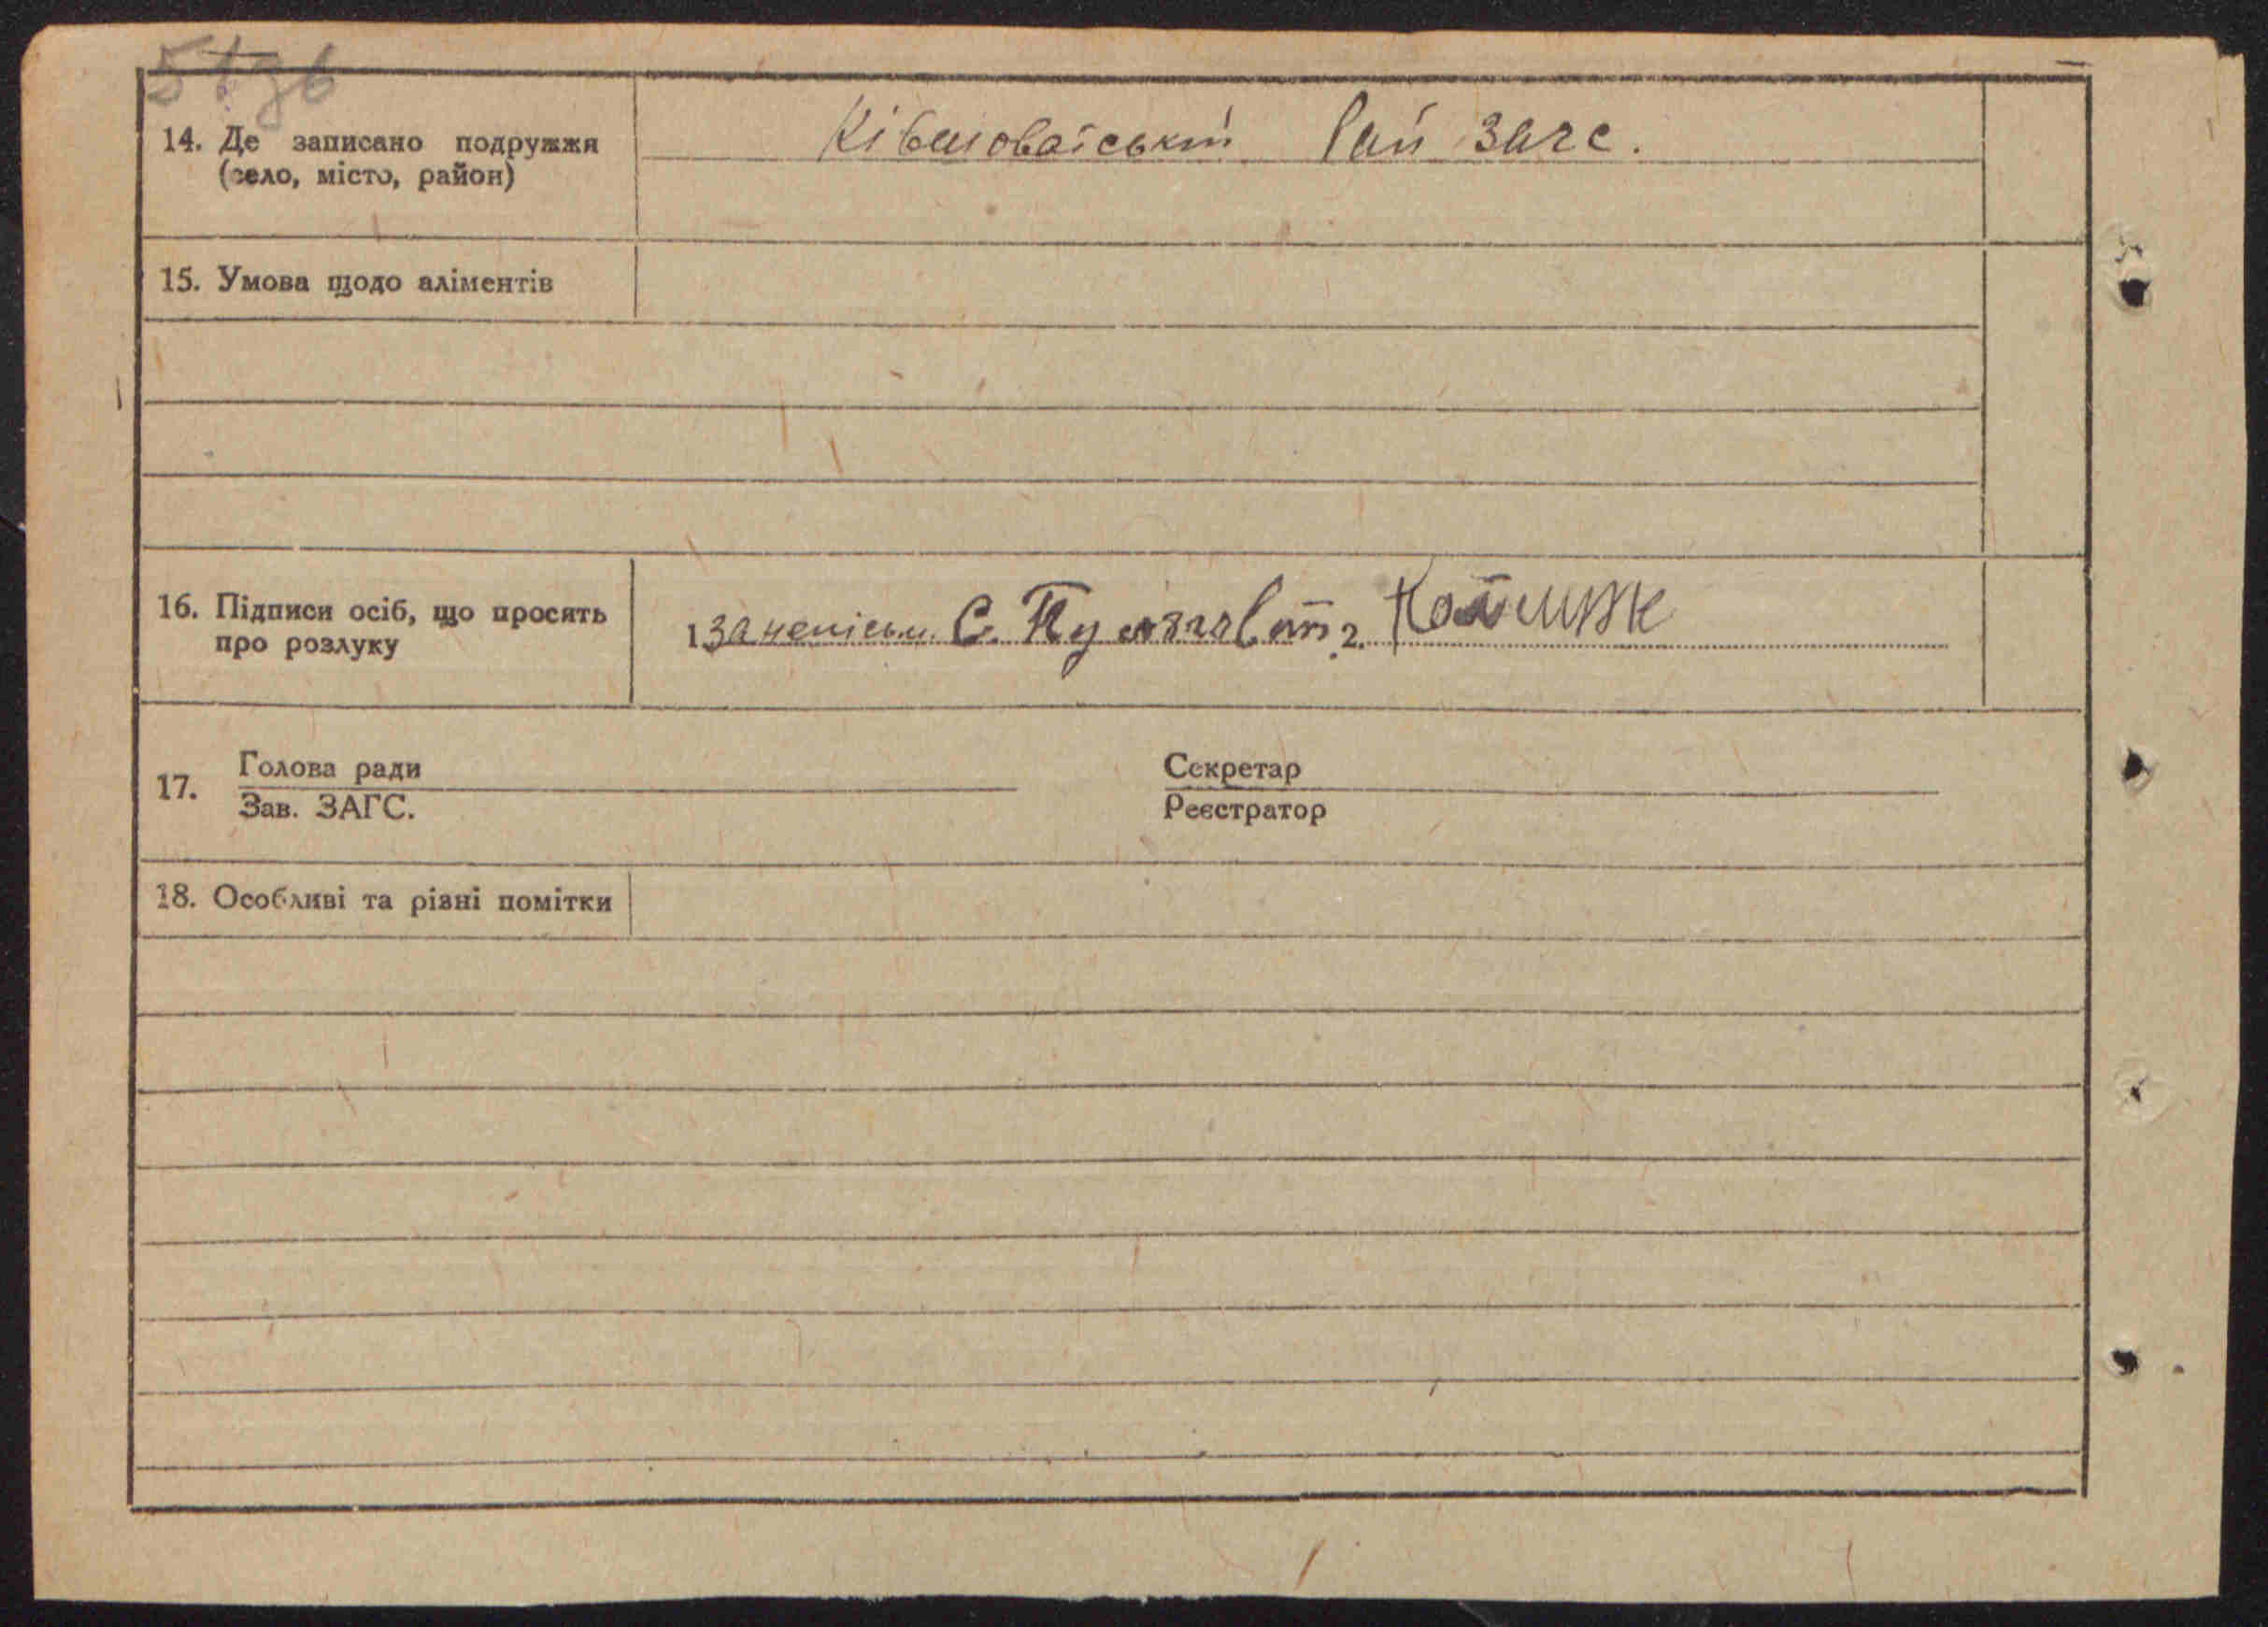 14. Де записано подружжя
(село, місто, район)
Рай Загс.
15. Умова щодо аліментів
16. Підписи осіб, що просять
про розлуку
1 С. 2.
17. Голова ради
Зав. ЗАГС.
Секретар
Реєстратор
18. Особливі та різні помітки